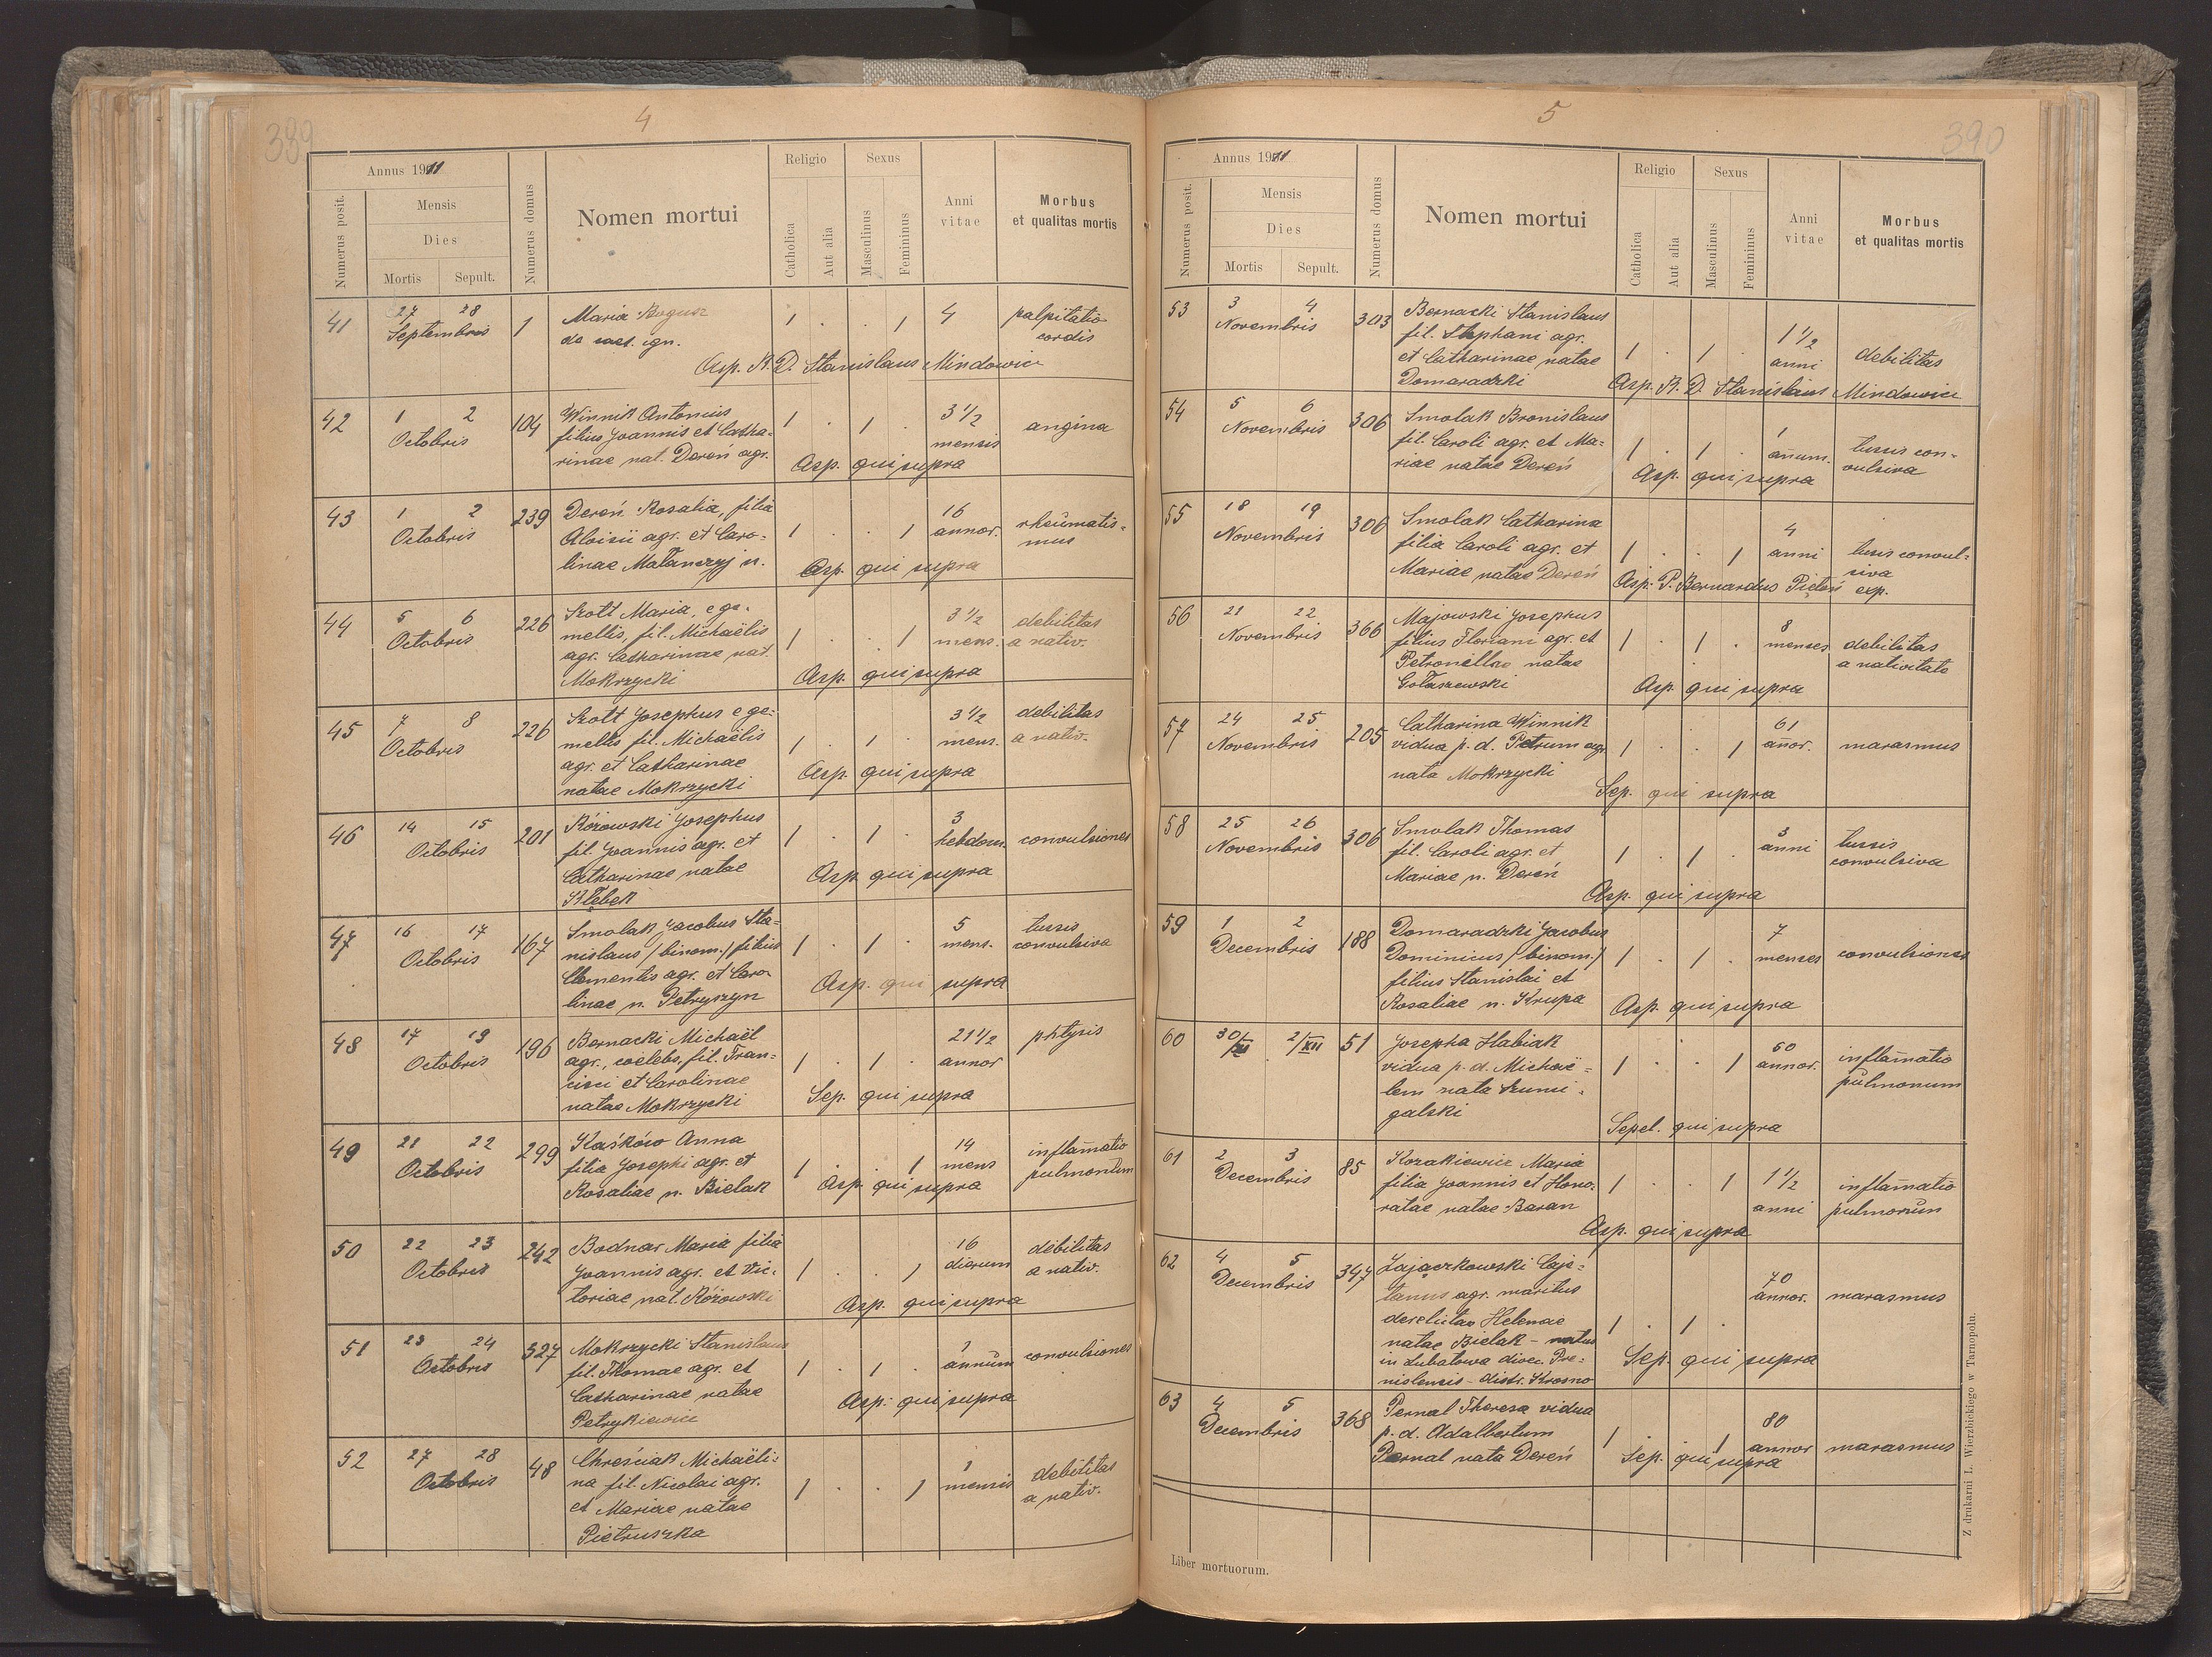 389
4
Annus 1911
Numerus posit.
Mensis
Dies
Mortis Sepult.
Numerus domus
Nomen mortui
Religio
Catholica
Aut alia
Sexus
Masculinus
Femininus
Anni
vitae
Morbus
et qualitas mortis
41 27 28 1 Maria Bogusz 1 . . 1 4 palpitatio
Septembris de ign. cordis
Asp. R. D. Stanislaus Mindowicz
42 1 2 104 Winnik Antonius 1 . 1 . 3 1/2 angina
Octobris filius Joannis et Catha= mensis
rinae nat. Dereń agr. Asp. qui supra
43 1 2 239 Dereń Rosalia, filia 1 . . 1 16 rheumatis=
Octobris Aloisii agr. et Caro= annor. mus
linae Matanczyj n. Asp. qui supra
44 5 6 226 Szott Maria, e ge= 3 1/2 debilitas
Octobris mellis, fil. Michaëlis 1 . . 1 mens. a nativ.
agr. Catharinae nat.
Mokrzycki Asp. qui supra
45 7 8 226 Szott Josephus e ge= 3 1/2 debilitas
Octobris mellis fil. Michaëlis 1 . 1 . mens. a nativ.
agr. et Catharinae Asp. qui supra
natae Mokrzycki
46 14 15 201 Różowski Josephus 1 . 1 . 3 convulsiones
Octobris fil. Joannis agr. et hebdom.
Catharinae natae Asp. qui supra
Kłębek
47 16 17 167 Smolak Jacobus Sta= 5 tussis
Octobris nislaus /binom./ filius 1 . 1 . mens. convulsiva
Clementis agr. et Caro= Asp. qui supra
linae n. Petryszyn
48 17 19 196 Bernacki Michaël 21 1/2 phtysis
Octobris agr., coelebs, fil. Fran= 1 . 1 . annor
cisci et Carolinae
natae Mokrzycki Sep. qui supra
49 21 22 299 Kaśków Anna 14 inflam̄atio
Octobris filia Josephi agr. et 1 . . 1 mens pulmonum
Rosaliae n. Bielak Asp. qui supra
50 22 23 242 Bodnar Maria filia 16 debilitas
Octobris Joannis agr. et Vic= 1 . . 1 dierum a nativ.
toriae nat. Różowski Asp. qui supra
51 23 24 327 Mokrzycki Stanislaus 1 convulsiones
Octobris fil. Thomae agr. et 1 . 1 . annum
Catharinae natae Asp. qui supra
Petrykiewicz
52 27 28 48 Chreściak Michaëli= 1 debilitas
Octobris na fil. Nicolai agr. 1 . . 1 mensis a nativ.
et Mariae natae
Pietruszka
390
5
Annus 1911
Numerus posit.
Mensis
Dies
Mortis Sepult.
Numerus domus
Nomen mortui
Religio
Catholica
Aut alia
Sexus
Masculinus
Femininus
Anni
vitae
Morbus
et qualitas mortis
53 3 4 303 Bernacki Stanislaus
Novembris fil. Stephani agr. 1 1/2
et Catharinae natae 1 . 1 . anni debilitas
Domaradzki Asp. R. D. Stanislaus Mindowicz
54 5 6 306 Smolak Bronislaus 1
Novembris fil. Caroli agr. et Ma= 1 . 1 . an̄um. tussis con=
riae natae Dereń Asp. qui supra vulsiva
55 18 19 306 Smolak Catharina 4
Novembris filia Caroli agr. et 1 . . 1 anni tussis convul=
Mariae natae Dereń siva
Asp. P. Bernardus exp.
56 21 22 366 Majowski Josephus 8
Novembris filius Floriani agr. et 1 . 1 . menses debilitas
Petronellae natae a nativitate
Gołaszewski Asp. qui supra
57 24 25 205 Catharina Winnik 61
Novembris vidua p. d. Petrum agr. 1 . . 1 an̄or. marasmus
nata Mokrzycki Sep. qui supra
58 25 26 306 Smolak Thomas 3 tussis
Novembris fil. Caroli agr. et 1 . 1 . anni convulsiva
Mariae n. Dereń Asp. qui supra
59 1 2 188 Domaradzki Jacobus 7
Decembris Dominicus /binom./ 1 . 1 . menses convulsiones
filius Stanislai et
Rosaliae n. Krupa Asp. qui supra
60 30/XI 2/XII 51 Josepha Habiak 60 inflam̄atio
vidua p. d. Michaë= 1 . . 1 annor. pulmonum
lem nata Szumi=
galski Sepel. qui supra
61 2 3 85 Kozakiewicz Maria
Decembris filia Joannis et Hono= 1 . . 1 1 1/2 inflam̄atio
ratae natae Baran anni pulmonum
Asp. qui supra
62 4 5 347 Zajączkowski Caje=
Decembris tanus agr. maritus 70
derelictae Helenae annor. marasmus
natae Bielak – natus 1 . 1 .
in Lubatowa dioec. Pre= Sep. qui supra
mislensis – distr. Krosno
63 4 5 368 Pernal Theresa vidua 80
Decembris p. d. Adalbertum 1 . . 1 annor marasmus
Pernal nata Dereń Sep. qui supra
Liber mortuorum.
Z drukarni L. Wierzbickiego w Tarnopolu.